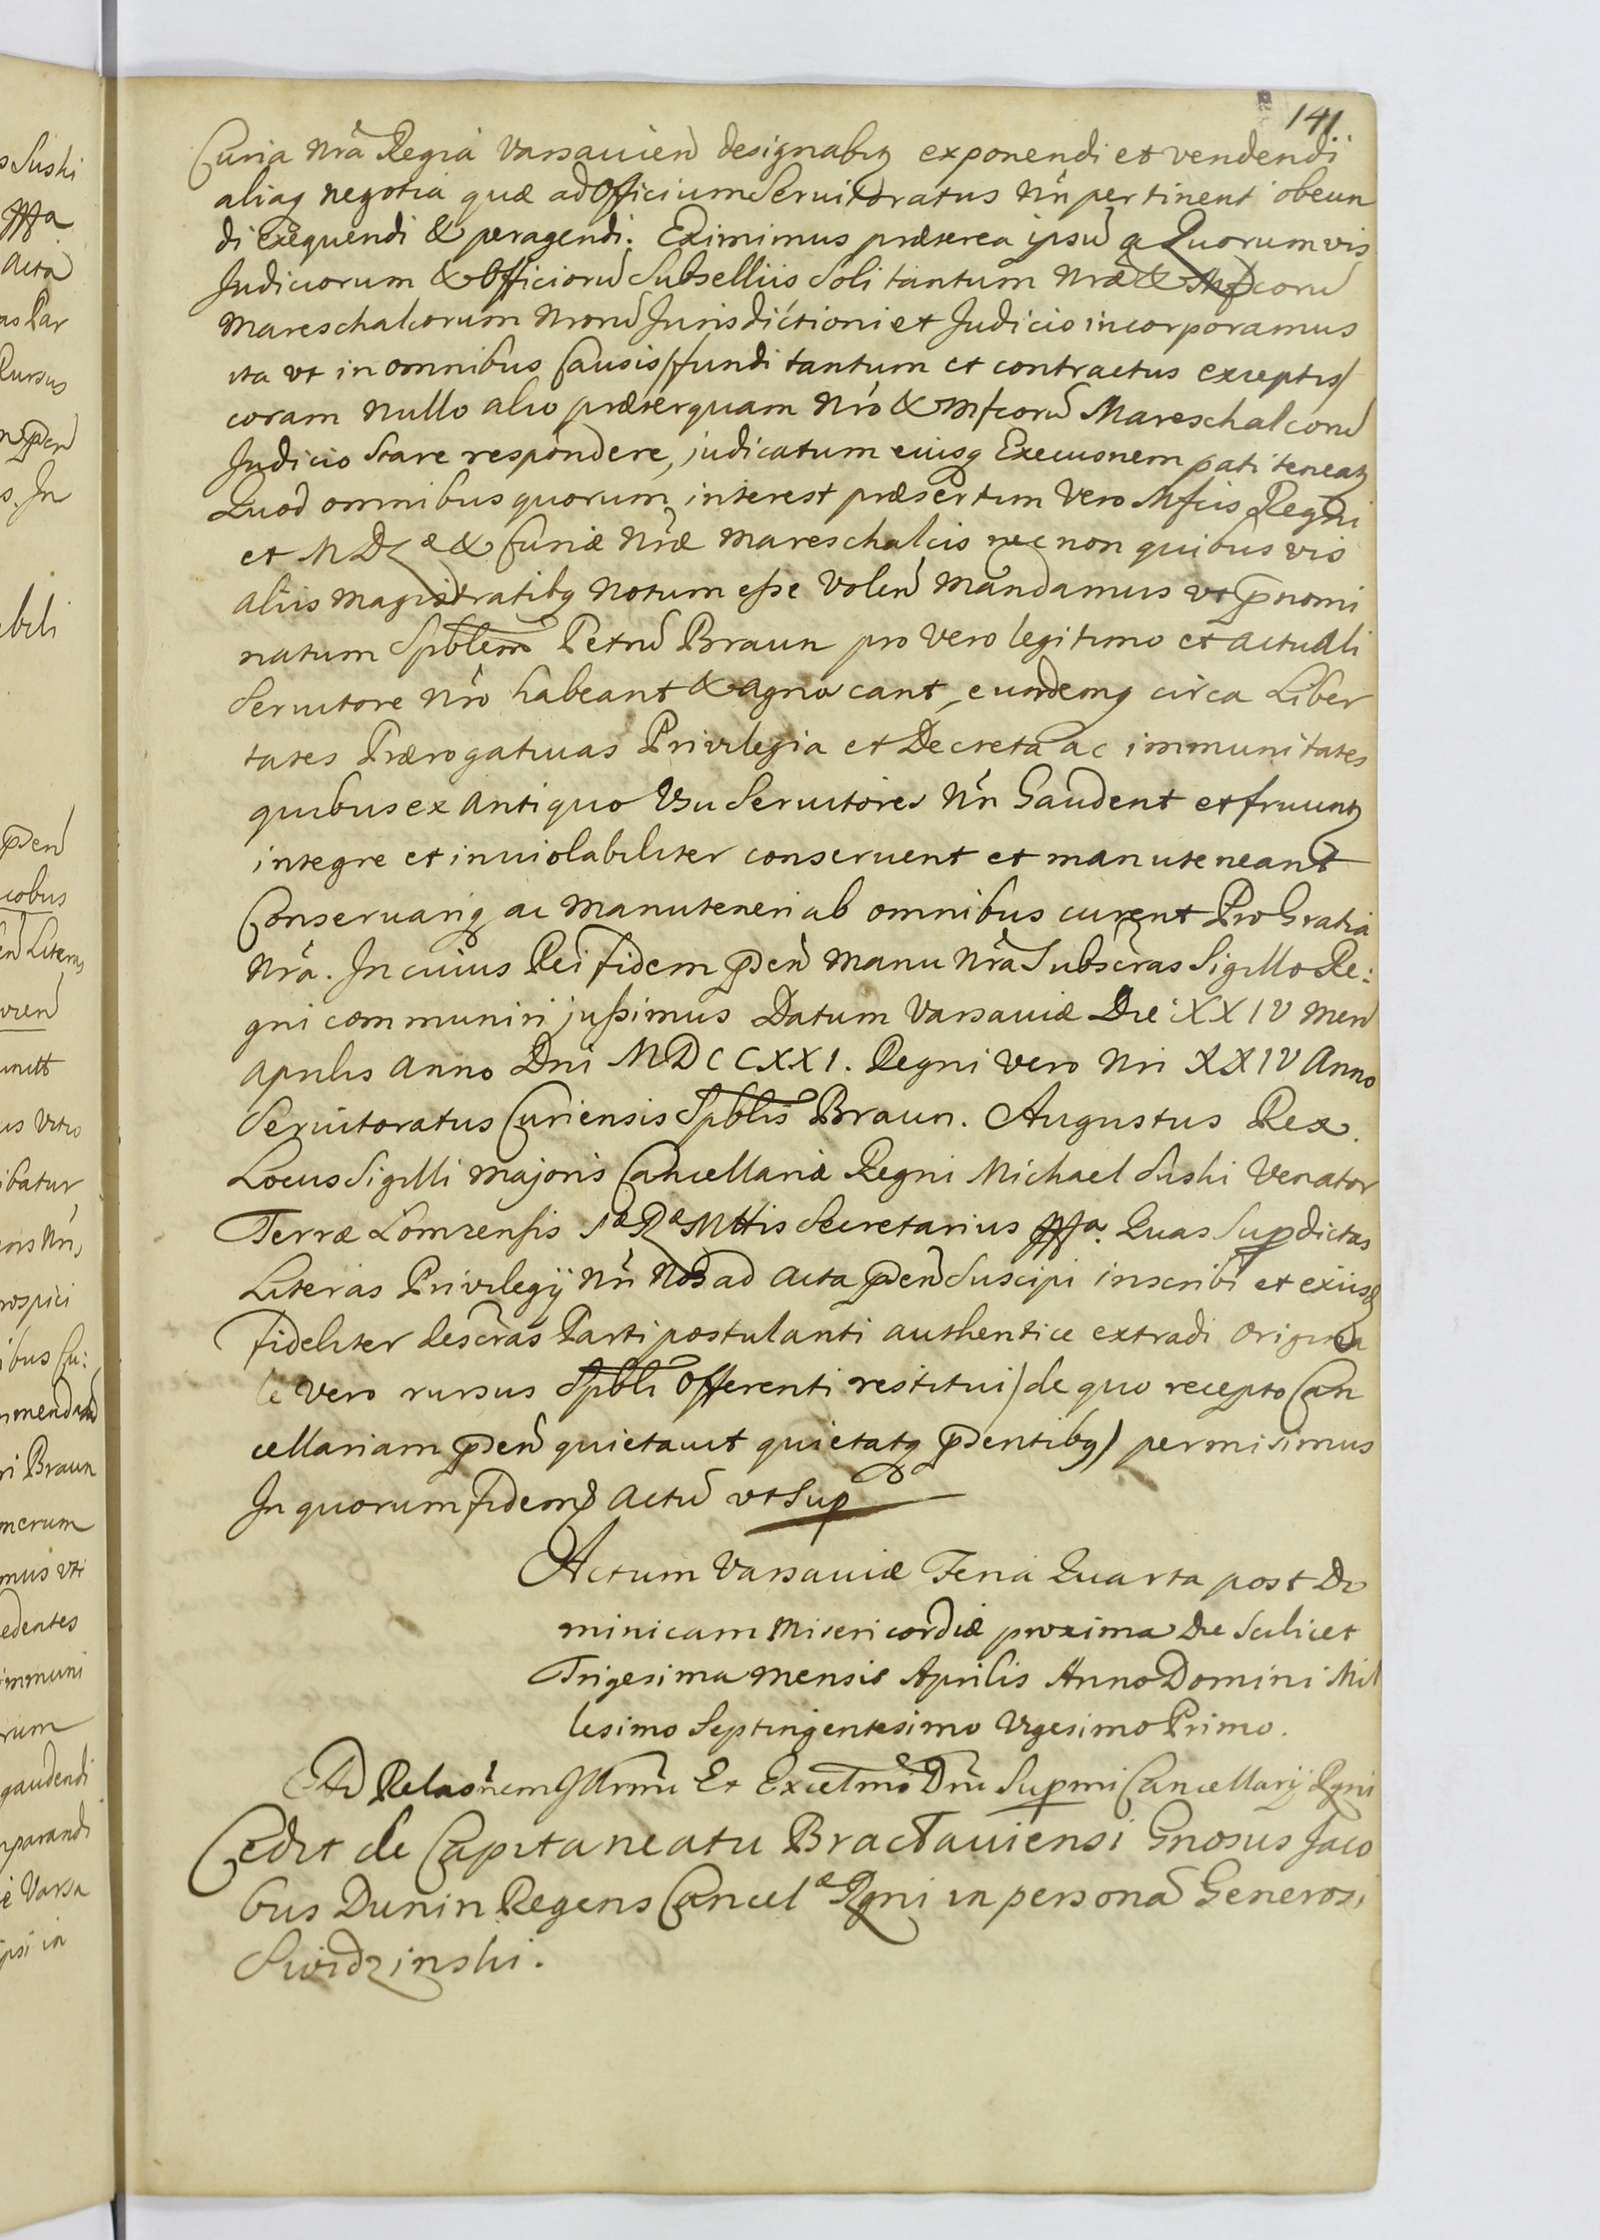 141.
Curia Nrã Regia Varsauien designabq exponendi et vendendi
aliaq negotia quæ ad Officium Seruitoratus Nri pertinent obeun
di Exequendi & peragendi. Eximimus præterea ipsũ a Quorumvis
Judiciorum & Officiorũ Subselliis Soli tantum Nræ & Mfcorũ
Mareschalcorum Nrorũ Jurisdictioni et Judicio incorporamus
ita vt in omnibus Causis /ffundi tantum et contractus exceptis/
coram nullo alio præterquam Nro & Mfcorũ Mareschalcorũ
Judicio Stare respondere, judicatum eiusq Execuonem pati teneatq
Quod omnibus quorum interest præsertim Vero Mfcis Regni
et M D L æ & Curiæ Nræ Mareschalcis nec non quibusvis
aliis magistratibq notum esse Volen Mandamus vt p̃nomi
natum Spblem Petrũ Braun pro Vero legitimo et actuali
Seruitore Nro habeant & agnoscant, eundemq circa Liber
tates Prærogatiuas Privilegia et Decreta ac immunitates
quibus ex antiquo Vsu Seruitores Nri Gaudent et fruuntq
integre et inuiolabiliter conseruent et manuteneant
Conseruariq ac Manuteneri ab omnibus curent Pro Gratia
Nrã. In cuius Rei fidem p̃sen manu Nrã Subscras Sigillo Re:
gni communiri jussimus Datum Varsauiæ Die XXIV Men
Aprilis Anno Dni MDCCXXI. Regni vero Nri XXIV Anno
Seruitoratus Curiensis Spblis Braun. Augustus Rex.
Locus Sigilli majoris Cancellariæ Regni Michael Suski Venator
Terræ Lomzensis Sæ Ræ Mttis Secretarius mppa. Quas Supdictas
Literas Privilegij Nri Nos ad acta p̃sen Suscipi inscribi et exiisq
fideliter descras Parti postulanti authentice extradi Origina
le vero rursus Spbli Offerenti restitui /de quo recepto Can
cellariam p̃sen quietauit quietatq p̃sentibq/ permisimus
In quorum fidem Actũ vt Sup
Actum Varsauiæ Feria Quarta post Do
minicam Misericordiæ proxima Die Scilicet
Trigesima mensis Aprilis Anno Domini Mil
lesimo Septingentesimo Vigesimo Primo.
Ad Relaõnem Illrmi Et Excelmi Dni Supmi Cancellarij Rgni
Cedit de Capitaneatu Bractauiensi Gnosus Jaco
bus Dunin Regens Cancelæ Rgni in personã Generosi
Swidzinski.